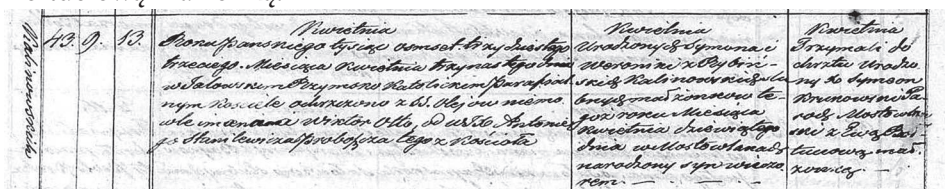 43. 9. 13.
Kwietnia
Roku Pańskiego tysiąc osmset trzydziestego
trzeciego. Miesiąca Kwietnia trzynastego dnia
w Jałowskim Rzymsko Katolickim Parafial
nym Kościele ochrzczono z SS. Olejow niemo
wle imieniem Wiktor Otto, od WJX. Antonie
go Stanilewicza Proboszcza tegoż Kościoła
Kwietnia
Urodzonych Symona i
Weroniki z Rybiń
skich Kalinowskich, ślu
bnych małżonkow te
goż roku Miesiąca
Kwietnia dziewiątego
dnia w Mostowlanach
narodzony syn wieczo
rem —
Kwietnia
Trzymali do
chrztu Urodzo
ny Symeon
Krukowski Pa
roch Mostowlań
ski z Ewą
mał
żonką